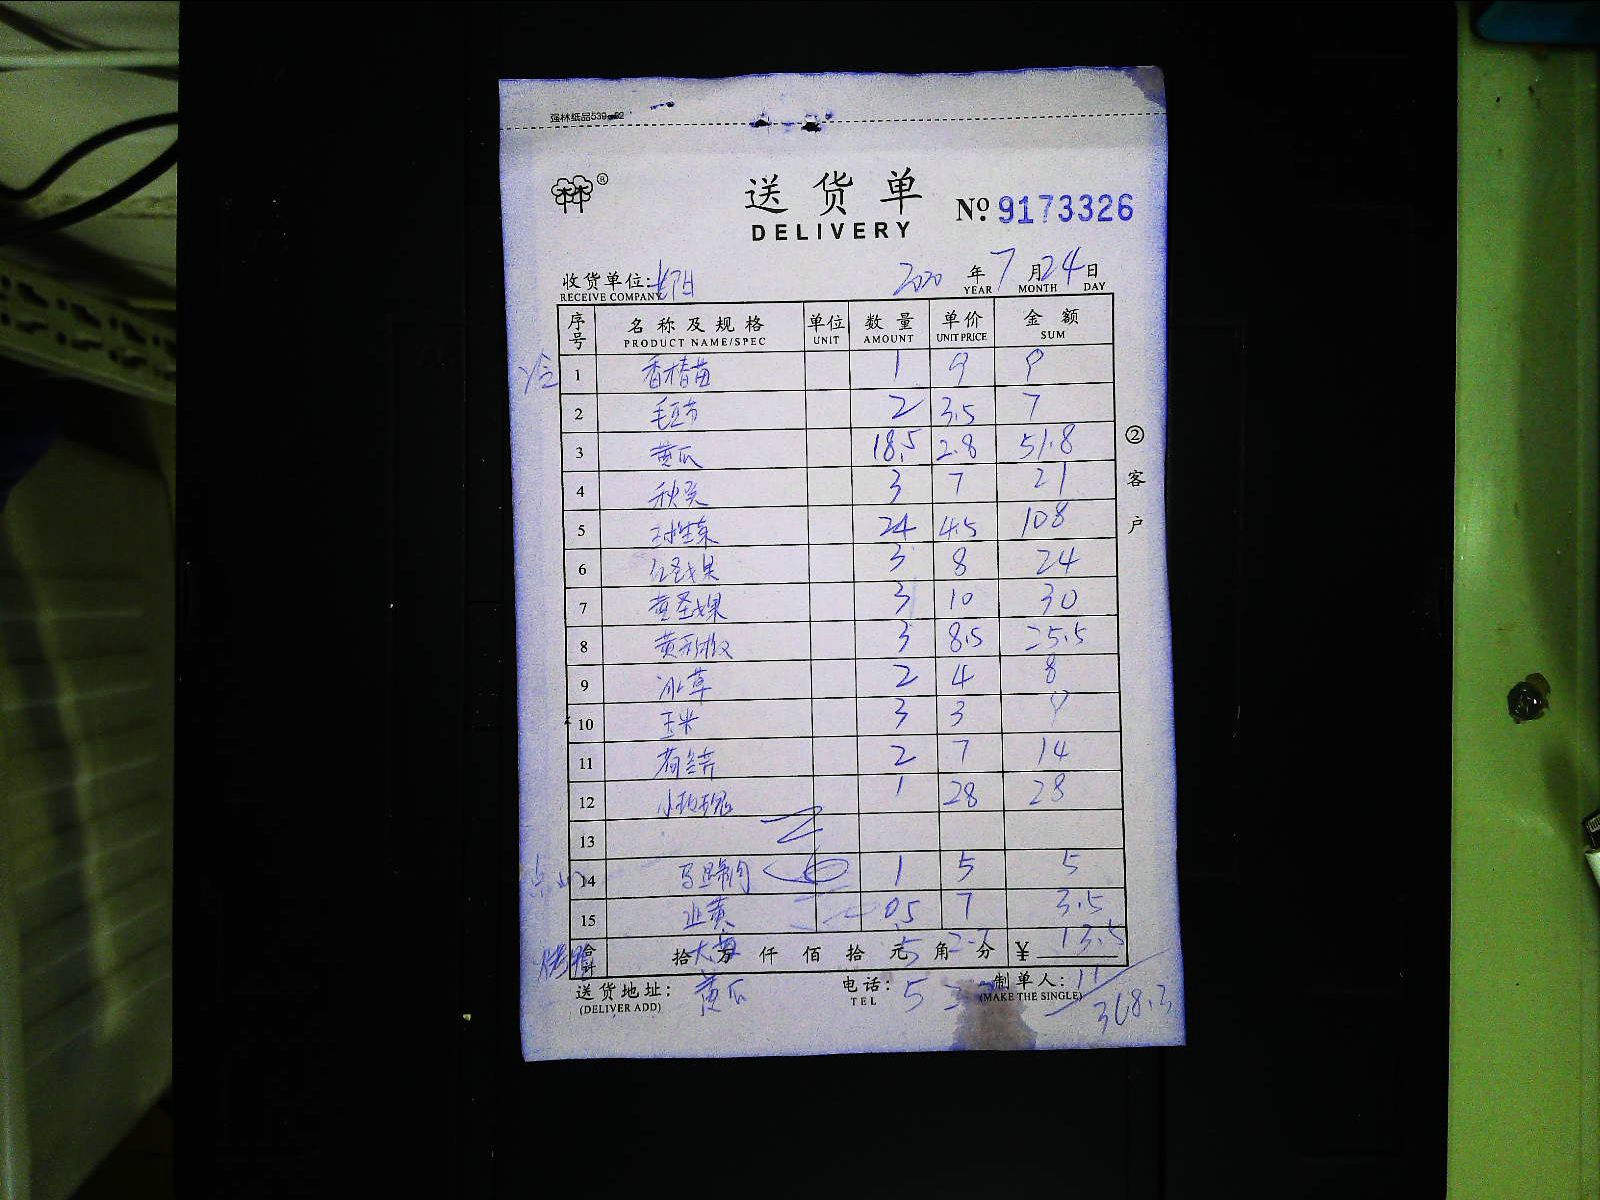 强林纸品539-82
送货单 №.9173326
DELIVERY
收货单位: 2020 年 7 月 24 日
RECEIVE COMPANY YEAR MONTH DAY
序号 名称及规格 单位 数量 单价 金额
PRODUCT NAME/SPEC UNIT AMOUNT UNIT PRICE SUM
冷 1 香椿苗 1 9 9
2 毛豆节 2 3.5 7
3 黄瓜 18.5 2.8 51.8
4 秋葵 3 7 21
5 球生菜 24 4.5 108
6 红圣女果 3 8 24
7 黄圣女果 3 10 30
8 黄彩椒 3 8.5 25.5
9 冰草 2 4 8
10 玉米 3 3 9
11 2 7 14
12 小玫瑰 1 28 28
13
14 马蹄肉 1 5 5
15 韭黄 0.5 7 3.5
合计 拾 万 仟 佰 拾 元 角 分 ¥ 13.5
5 2.7
送货地址: 黄瓜 电话: 5 制单人: 11
(DELIVER ADD) TEL (MAKE THE SINGLE)
368.3
②客户